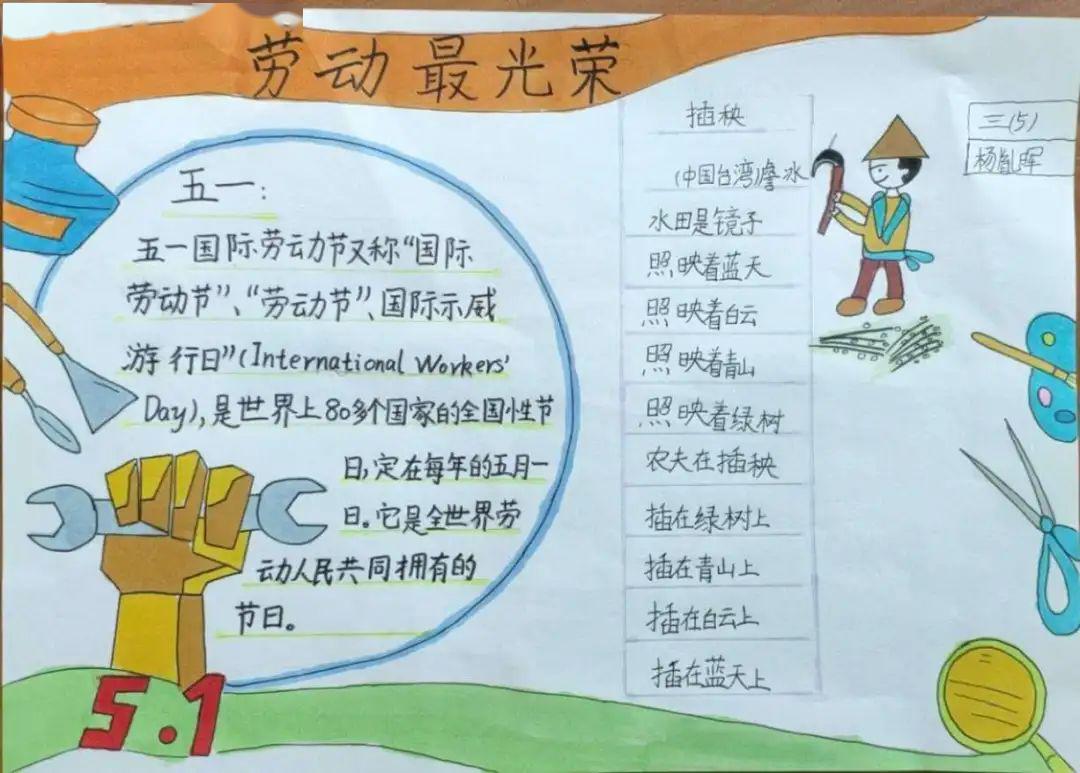 劳动最光荣
五一:
五一国际劳动节又称“国际
劳动节”、“劳动节”、国际示威
游行日”(International Workers'
Day),是世界上80多个国家的全国性节
日,定在每年的五月一
日。它是全世界劳
动人民共同拥有的
节日。
5.1
插秧
(中国台湾)詹冰
水田是镜子
照映着蓝天
照映着白云
照映着青山
照映着绿树
农夫在插秧
插在绿树上
插在青山上
插在白云上
插在蓝天上
三(5)